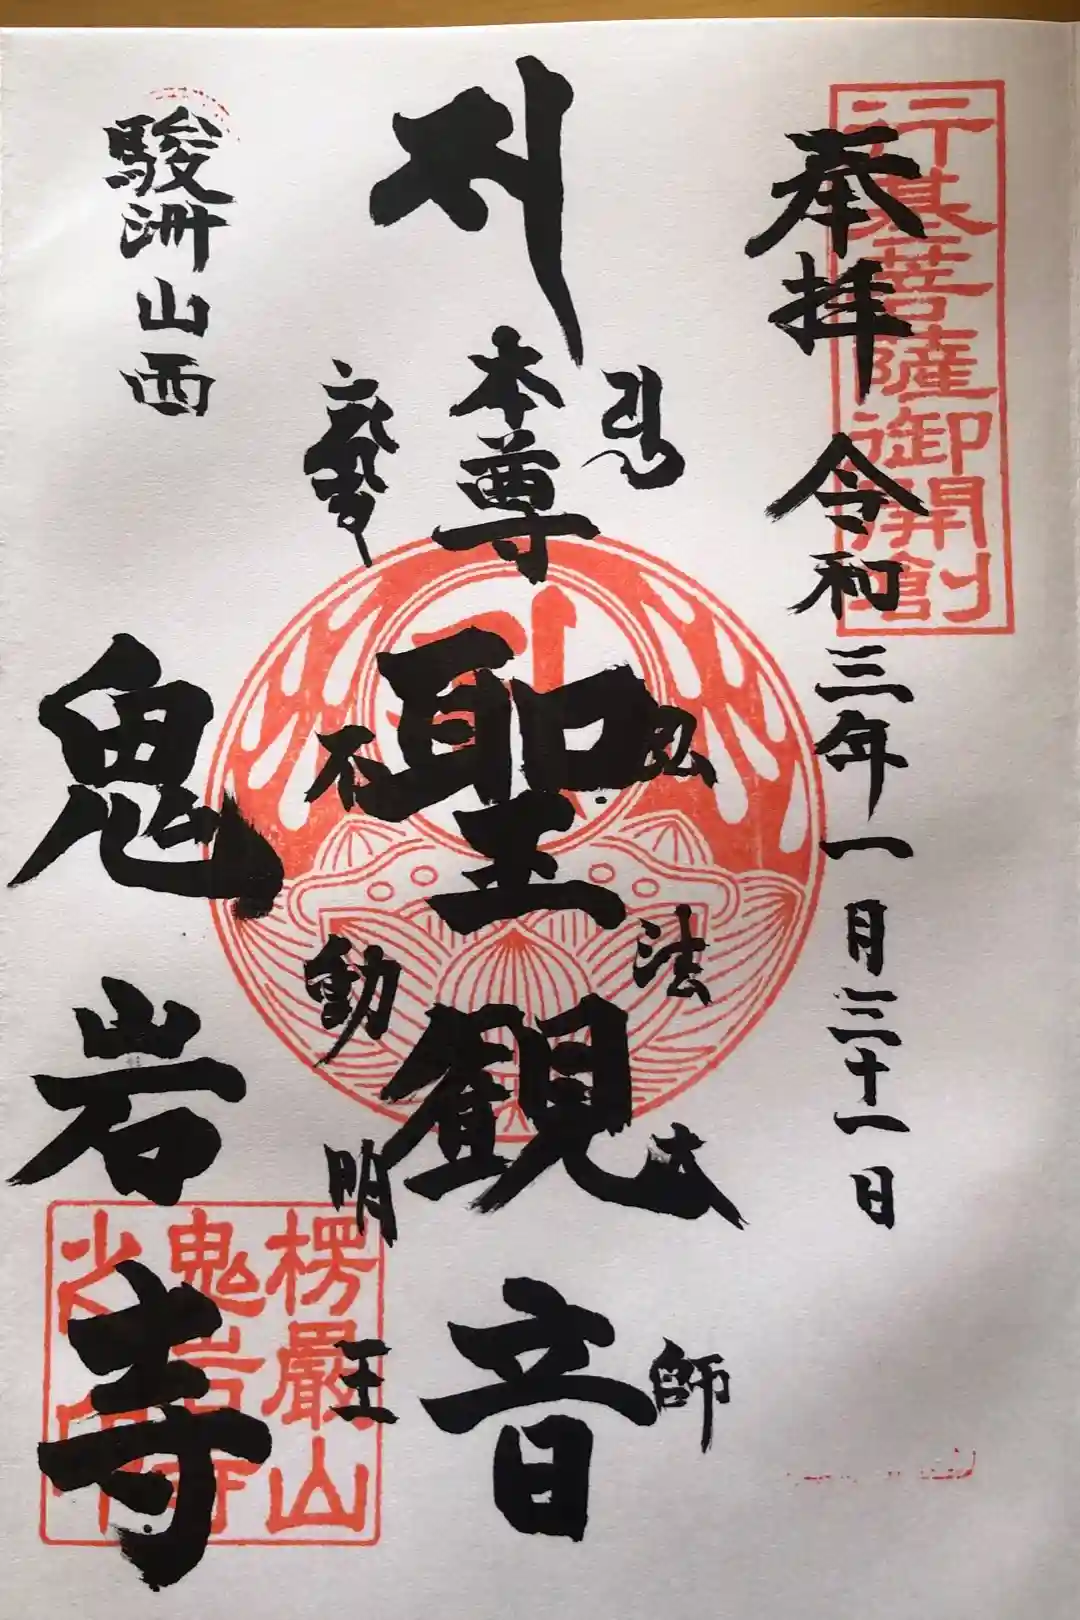 奉拝 令和三年一月三十一日
行基菩薩御開創
弘法大師
本尊
聖観音
不動明王
駿洲山西
鬼岩寺
楞嚴山
鬼岩寺